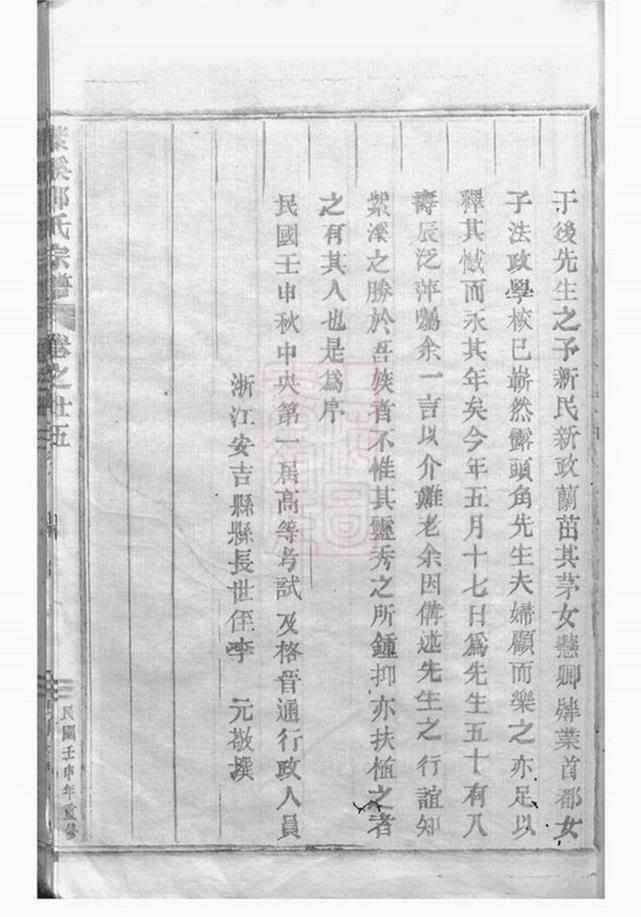 于後先生之予新民新政蘭茁其茅女慧卿肄業首都女
子法政學校已嶄然露頭角先生夫婦顧而樂之亦足以
釋其憾而永其年矣今年五月十七日爲先生五十有八
壽辰泛萍囑余一言以介難老余因備述先生之行誼知
紫溪之勝於吾族者不惟其靈秀之所鍾抑亦扶植之者
之有其人也是爲序
民國壬申秋中央第一屆高等考試及格晉通行政人員
浙江安吉縣縣長世侄李 元敬撰
溪邵氏宗譜 卷之廿五
民國壬申年重修